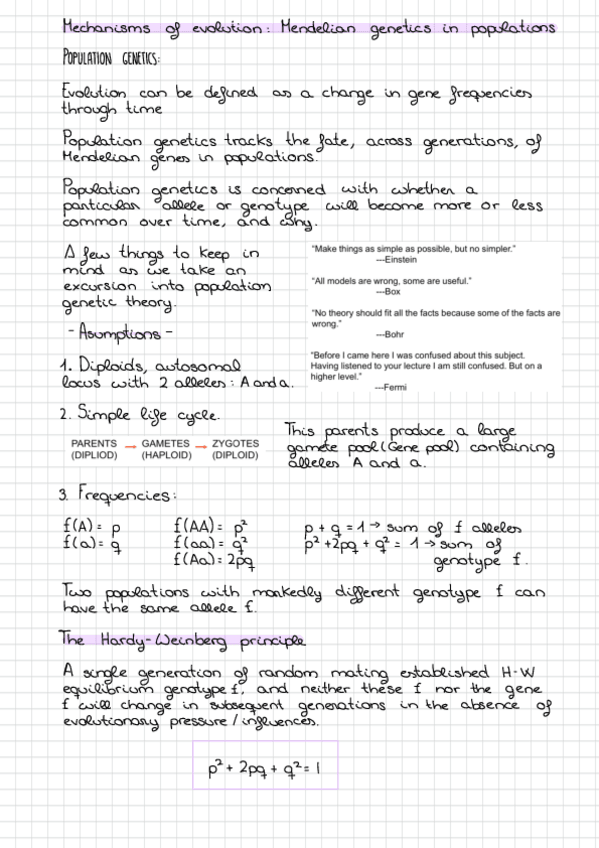 Mechanisms of evolution: Mendelian genetics in populations
POPULATION GENETICS:
Evolution can be defined as a change in gene frequencies
through time
Population genetics tracks the fate, across generations, of
Mendelian genes in populations.
Population genetics is concerned with whether a
particular allele or genotype will become more or less
common over time, and why.
A few things to keep in
mind as we take an
excursion into population
genetic theory.
"Make things as simple as possible, but no simpler."
---Einstein
"All models are wrong, some are useful."
---Box
"No theory should fit all the facts because some of the facts are
wrong."
---Bohr
"Before I came here I was confused about this subject.
Having listened to your lecture I am still confused. But on a
higher level."
---Fermi
- Asumptions -
1. Diploids, autosomal
locus with 2 alleles: A and a.
2. Simple life cycle.
PARENTS → GAMETES → ZYGOTES
(DIPLIOD) (HAPLOID) (DIPLOID)
This parents produce a large
gamete pool (Gene pool) containing
alleles A and a.
3. Frequencies:
f(A) = p f(AA) = p² p + q = 1 → sum of f alleles
f(a) = q f(aa) = q² p² + 2pq + q² = 1 → sum of
f(Aa) = 2pq genotype f.
Two populations with markedly different genotype f can
have the same allele f.
The Hardy-Weinberg principle
A single generation of random mating established H-W
equilibrium genotype f, and neither these f nor the gene
f will change in subsequent generations in the absence of
evolutionary pressure / influences.
p² + 2pq + q² = 1